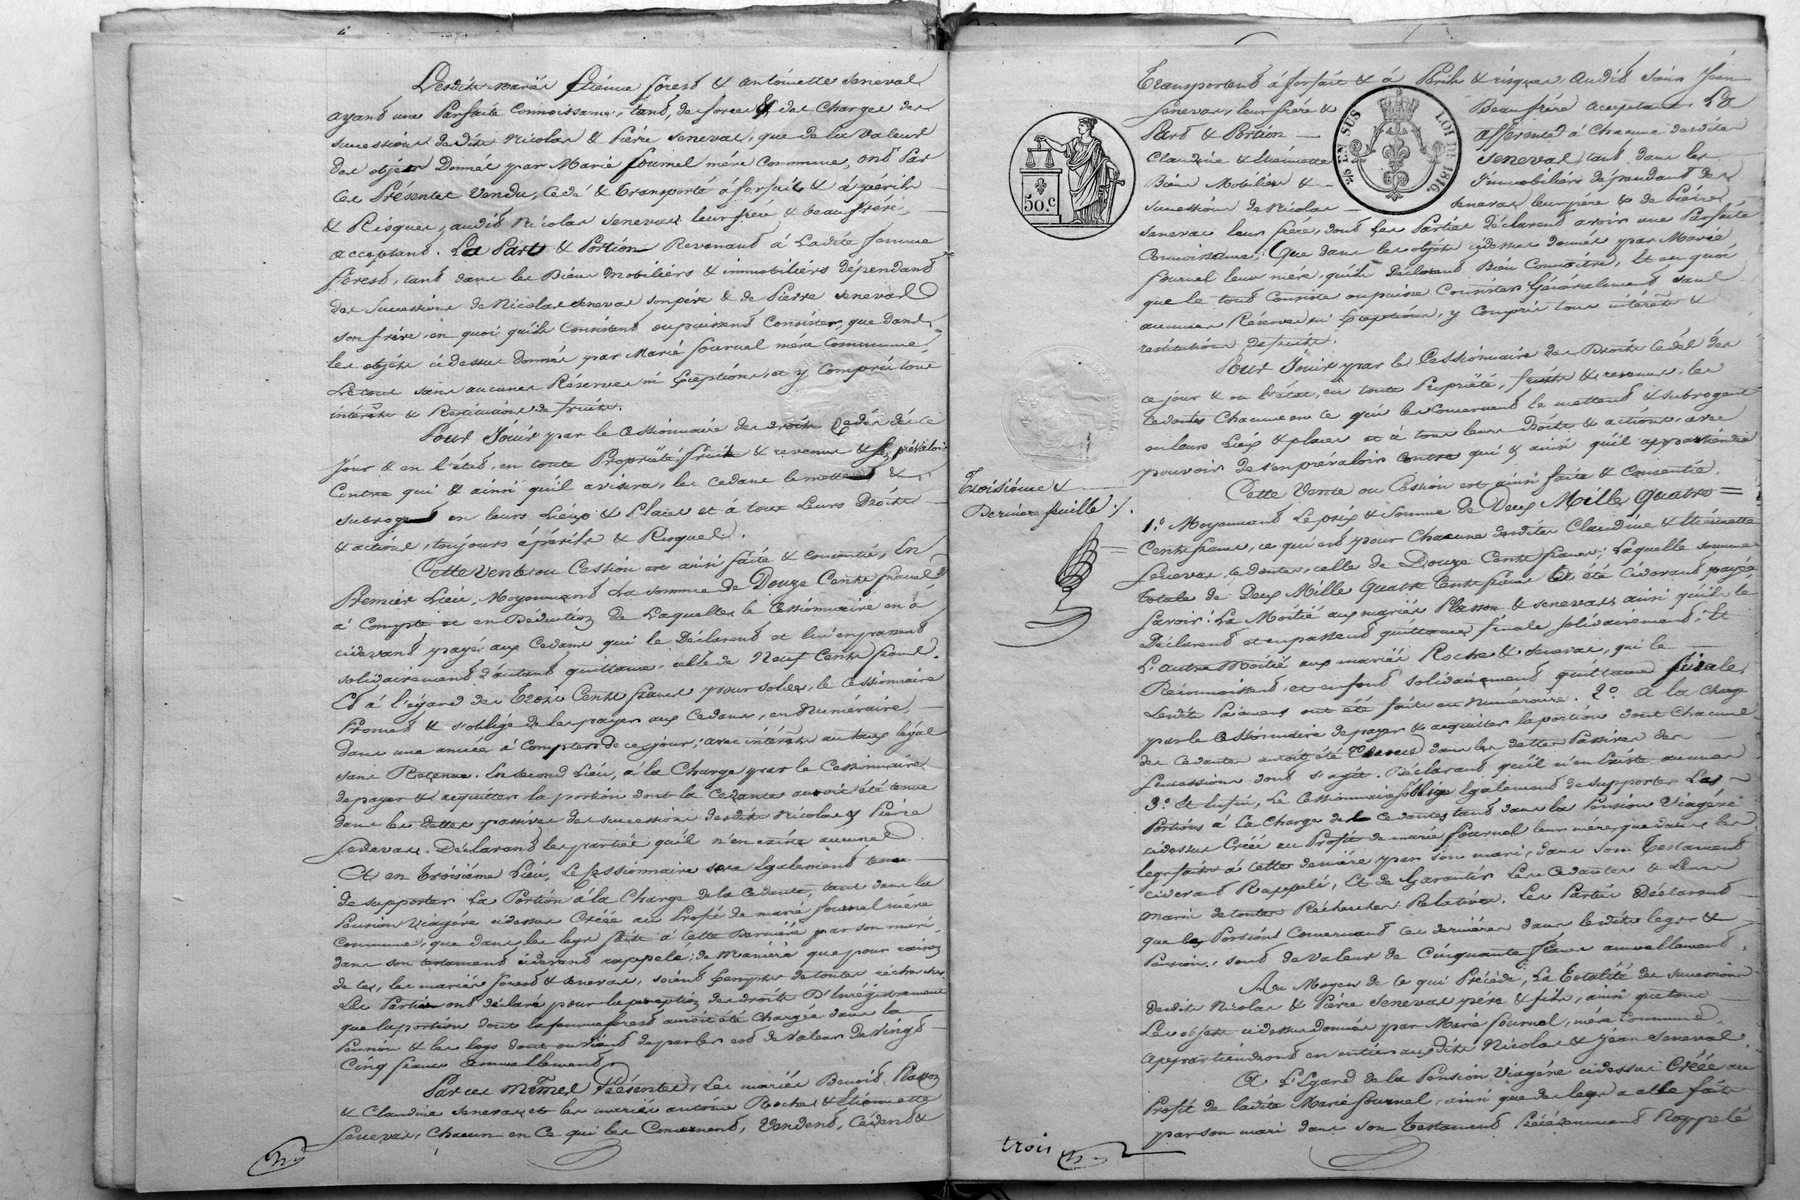 Lesdits mariés Etienne forest & antoinette Seneval
ayant une Parfaite Connoissance, tant, des forces & des Charges des
successions desdits Nicolas & Pière Seneval, que de la Valeur
des objets Donnés par Marie fournel mère Commune, ont Par
Ces Présentes Vendu, Cédé & transporté à forfait & à périls
& Risques, audit Nicolas Seneval leur frère & beau frère,
acceptant. La Part & Portion Revenant à Ladite femme
forest, tant dans les Biens Mobiliers & immobiliers dépendant
des Successions de Nicolas Seneval son père & de Pierre Seneval
son frère, en quoi qu'ils Consistent ou puissent Consister, que dans
les objets cidessus donnés par Marie fournel mère Commune,
Le tout sans aucunes Réserves ni Exceptions, et y Compris tous
intérêts & Restitutions de fruits.
Pour Jouir par le Cessionnaire des droits Cédés dès ce
Jour & en l'état, en toute Propriété, fruits & revenus & s'en prévaloir
Contre qui & ainsi qu'il avisera, les cedans le mettent &
subrogent en leurs Lieux & Places et à tous Leurs Droits
& actions, toujours à périls & Risques.
Cette Vente ou Cession est ainsi faite & consentie, En
Premier Lieu, Moyennant La somme de Douze Cents francs
à Compte et en Déduction de Laquelle, le Cessionnaire en a
cidevant payé aux Cedans qui le Déclarent et lui en passent
solidairement d'autant quittance, celle de Neuf Cents francs.
Et à l'égard des Trois Cents francs pour solde, le Cessionnaire
Promet & s'oblige de les payer aux Cedans, en Numéraire,
dans une année à Compter de ce jour, avec intérêts au taux légal
sans Retenue. En second Lieu, à la Charge par le Cessionnaire
de payer & acquitter la portion dont la Cédante auroit été tenue
dans les dettes passives des successions desdits Nicolas & Pierre
Seneval. Déclarant les parties qu'il n'en existe aucunes.
Et en troisième Lieu, Le Cessionnaire sera Egalement tenu
de supporter La Portion à la Charge de la Cedante, tant dans la
Pension Viagère cidessus Créée au Profit de marie fournel mère
Commune, que dans les legs faits à cette Dernière par son mari
dans son testament cidevant rappelé; de Manière que pour raison
de ce, les mariés forest & Seneval, soient Exempts de toutes recherches.
Les Parties ont déclaré pour la perception des droits D'Enrégistrement
que la portion dont la femme forest auroit été Chargée dans la
Pension & les legs dont on vient de parler est de valeur de vingt
Cinq francs annuellement.
Par ces Mêmes Présentes, Les mariés Benoit Plasson
& Claudine Seneval, et les mariés antoine Roche & Etiennette
Seneval, Chacun en Ce qui les Concernent, Vendent, Cèdent &
Transportent à forfait & à Périls & risques, audit Sieur Jean
Seneval, leur frère & Beau frère acceptant, La
Part & Portion afférente à Chacune desdites
Claudine & Etiennette Seneval, tant dans les
Biens Mobiliers & Immobiliers dépendant des
successions de Nicolas Seneval leur père & de Pière
Seneval leur frère, dont les Parties déclarent avoir une Parfaite
Connoissance, Que dans les objets cidessus donnés par Marie
fournel leur mère, qu'ils Déclarent Bien Connoître, Et en quoi
que le tout Consiste ou puisse Consister Généralement sans
aucunes Réserves ni Exceptions, y Compris tous intérêts &
restitutions de fruits.
Pour Jouir par le Cessionnaire des Droits Cédés dès
ce jour & en l'état, en toute Propriété, fruits & revenus, les
Cedants Chacun en Ce qui les Concernent le mettent & subrogent
en leurs Lieux & places et à tous leurs Droits & actions, avec
pouvoir de s'en prévaloir contre qui & ainsi qu'il appartiendra
Cette Vente ou Cession est ainsi faite & Consentie.
1.° Moyennant Le prix & Somme de Deux Mille quatre
Cents francs, ce qui est pour Chacune desdites Claudine & Etiennette
Seneval, Cedantes, celle de Douze Cents francs; Laquelle somme
totale de Deux Mille Quatre Cents francs a été cidevant payée
Savoir: La Moitié aux mariés Plasson & Seneval, ainsi qu'ils le
Déclarent et en passent quittance finale solidairement; Et
L'autre Moitié aux mariés Roche & Seneval, qui le
Réconnoissent, et en font solidairement quittance finale,
Lesdits Paiemens ont été faits en Numéraire. 2.° à la Charge
par le Cessionnaire de payer & acquitter la portion dont Chacune
des Cedantes auroit été tenue dans les dettes Passives des
Successions dont s'agit. Déclarant qu'il n'en Existe aucunes
3.° Et Enfin, Le Cessionnaire s'oblige également de supporter Les
Portions à La Charge des Cedantes tant dans la Pension Viagère
cidessus Créée au Profit de marie fournel leur mère, que dans les
legs faits à cette dernière par son mari, dans son Testament
cidevant Rappelé, Et de Garantir Les Cedantes & Leurs
maris de toutes Récherches Relatives. Les Parties Déclarent
que les Portions Concernant ces dernières dans lesdits legs &
Pension, sont de valeur de Cinquante francs annuellement.
Au Moyen de Ce qui Précède, La Totalité des successions
desdits Nicolas & Pière Seneval père & fils, ainsi que tous
Les objets cidessus donnés par Marie fournel, mère Commune,
appartiendront en entier auxdits Nicolas & Jean Seneval.
A L'Egard de la Pension Viagère cidessus Créée au
Profit de ladite Marie fournel, ainsi que des legs a elle faits
par son mari dans son Testament Précédemment Rappelé
Troisième &
Dernière feuille ./.
50.c
EN SUS
LOI DE 1816.
trois